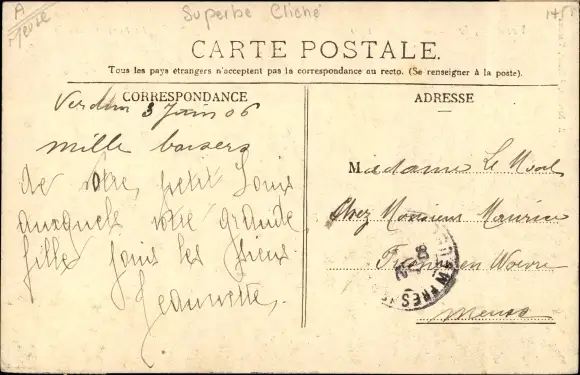 A
Meuse
Superbe Cliché
CARTE POSTALE.
Tous les pays étrangers n'acceptent pas la correspondance au recto. (Se renseigner à la poste).
CORRESPONDANCE
Verdun 3 Juin 06
mille baisers
de votre petit Louis
auxquels votre grande
fille joint les siens
Jeannette.
ADRESSE
Madame Le
Chez Monsieur Maurice
Fresnes en Woëvre
Meuse